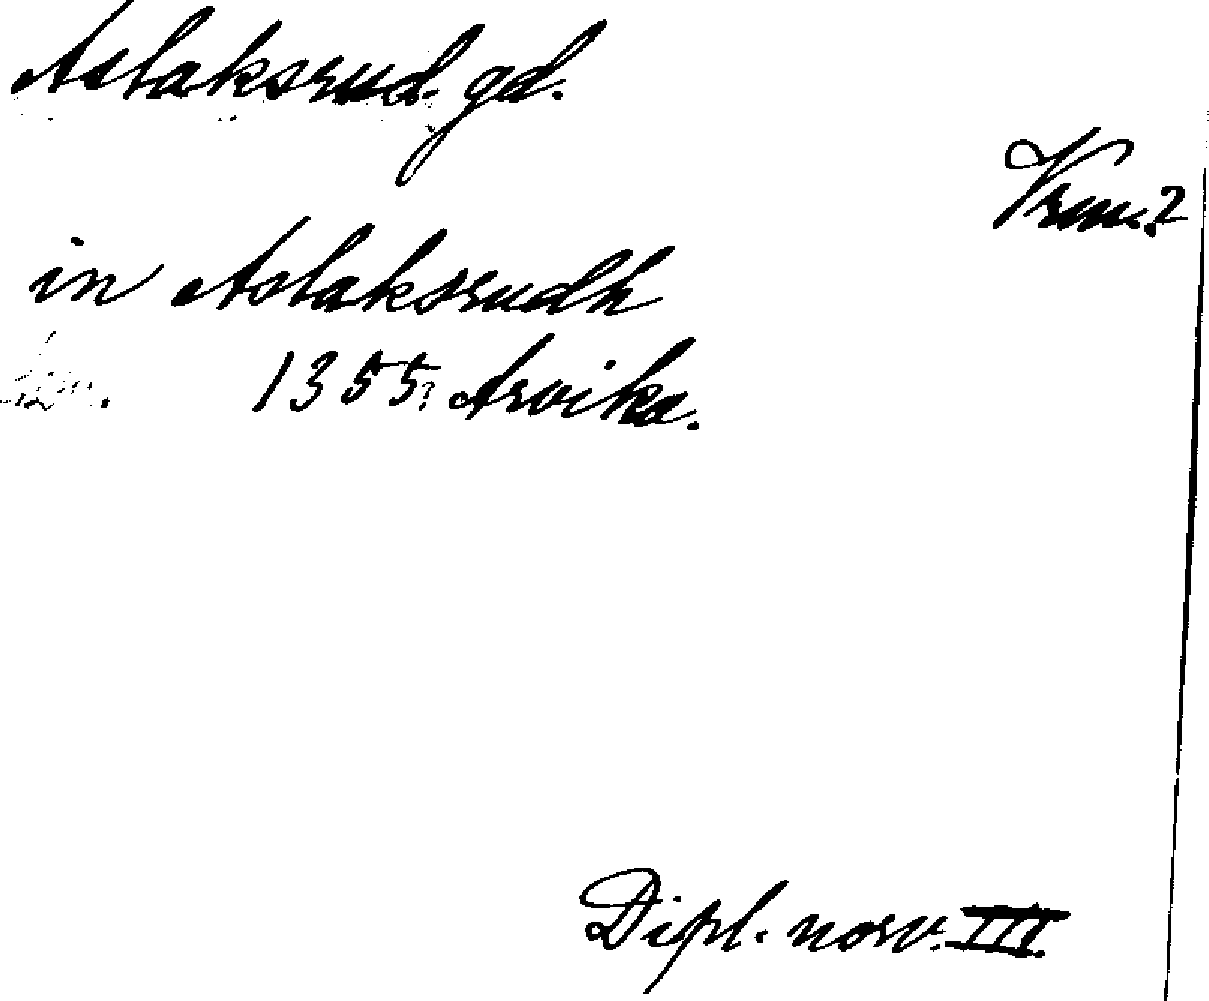 Aslaksrud. gd.
Vrm.?
in Aslaksrudh
1355? Arvika.
Dipl. norv. III